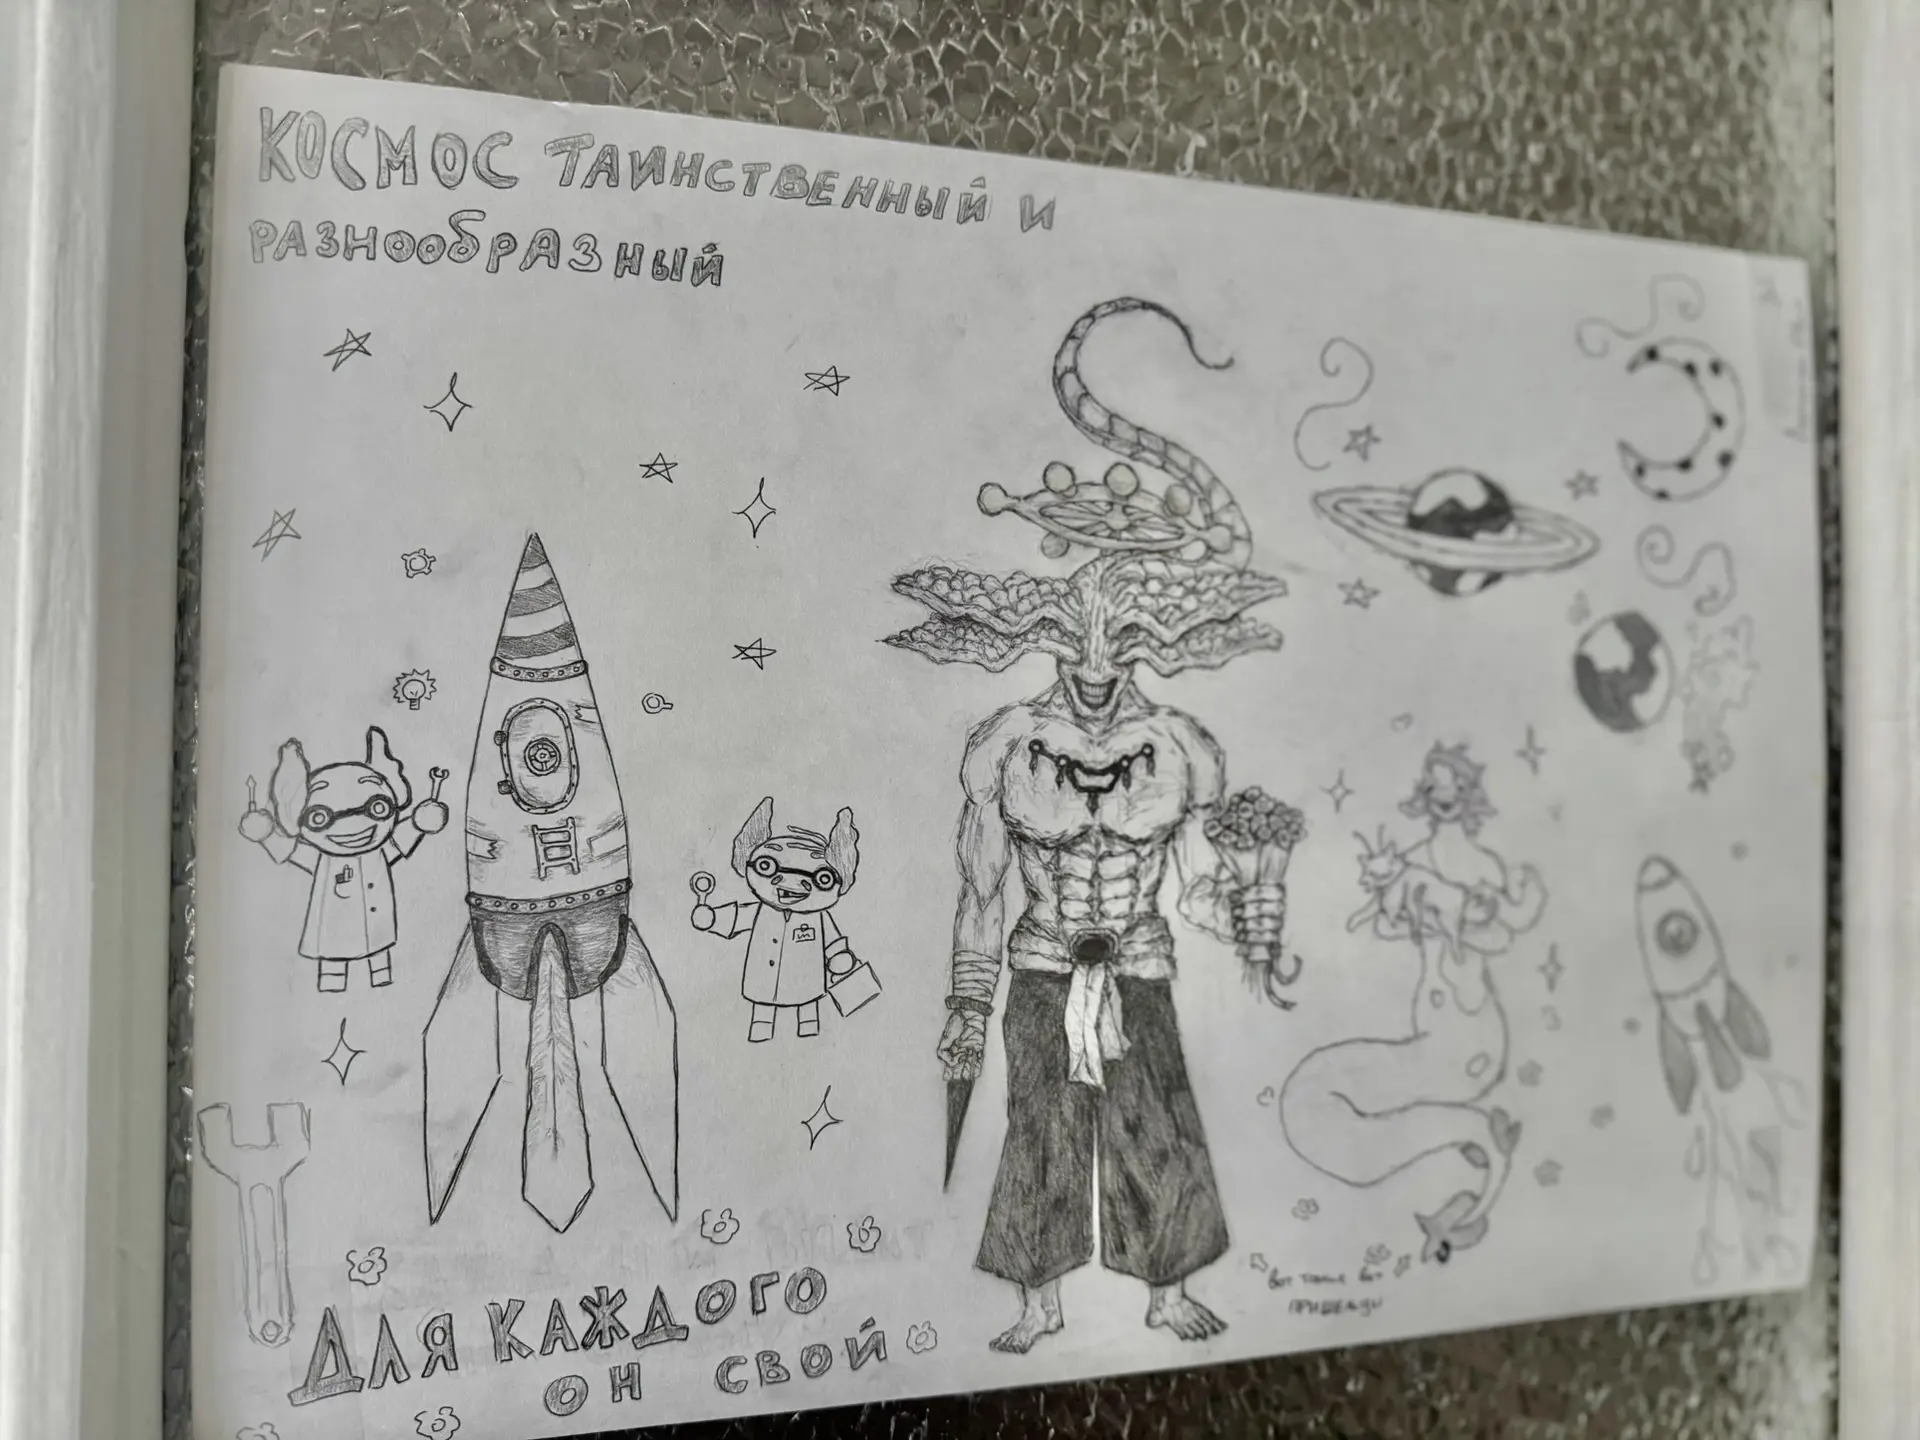 КОСМОС ТАИНСТВЕННЫЙ И
РАЗНООБРАЗНЫЙ
ДЛЯ КАЖДОГО
ОН СВОЙ
Вот такие вот
пришельцы